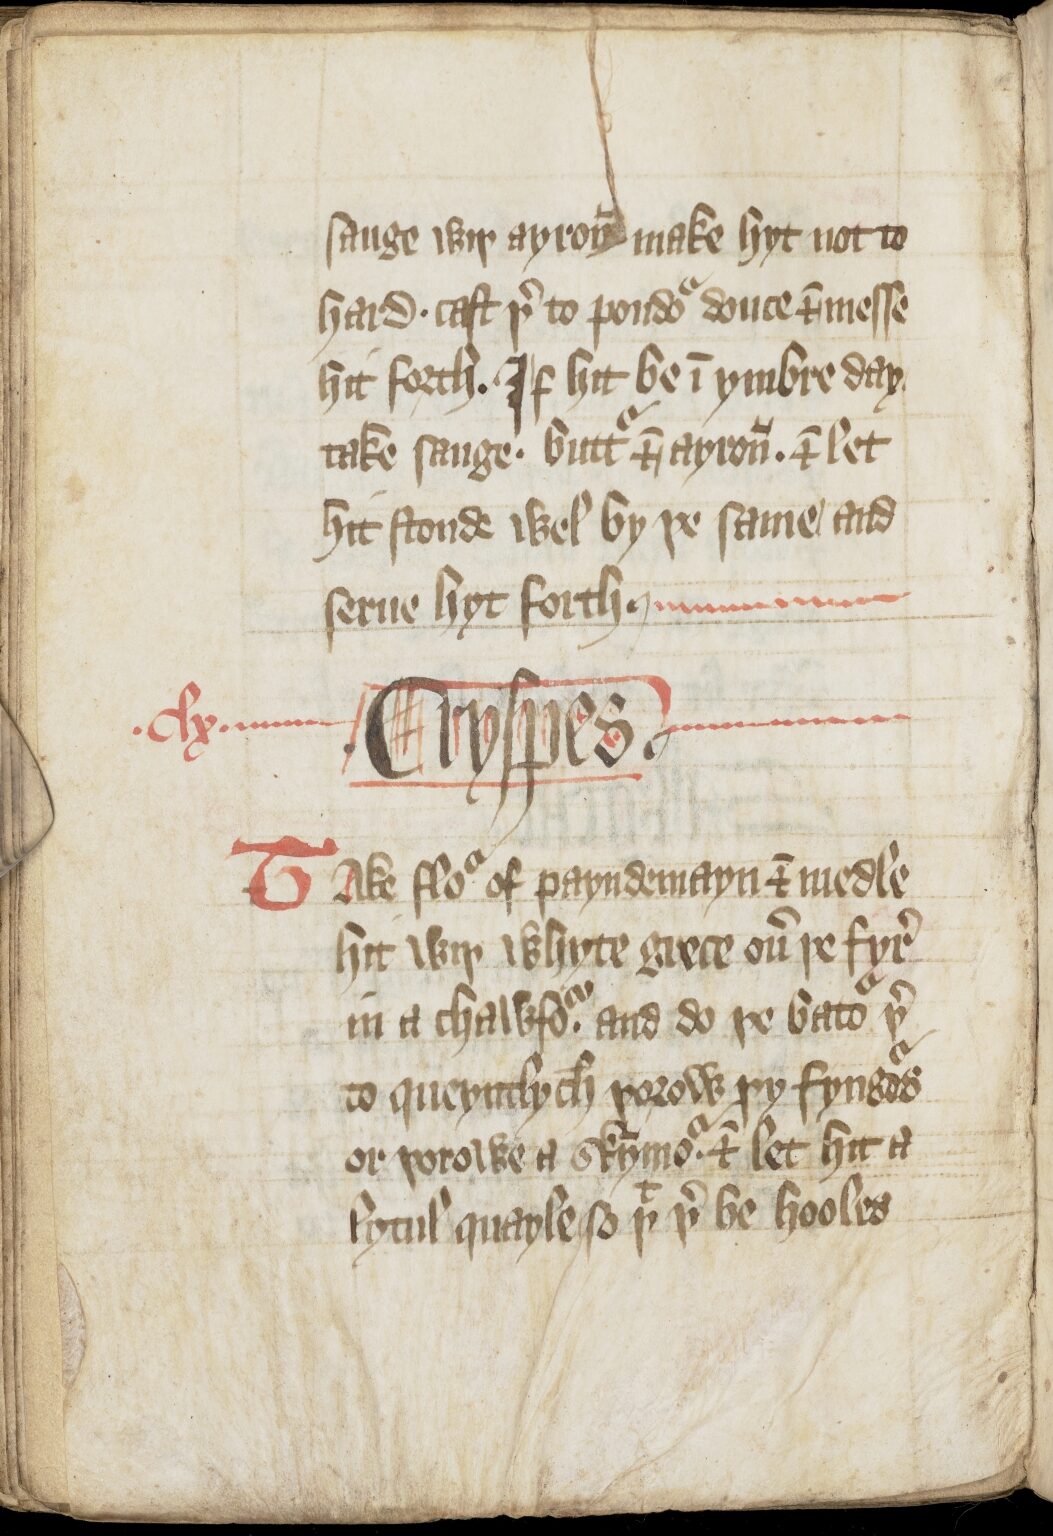 sauge wiþ ayroū make hyt not to
hard · cast þ̉ to poudoᵉ douce ⁊ messe
hit forth. If hit be ī ymbre day
take sauge · buttᵉ ⁊ ayroū . ⁊ let
hit stonde wel by þe same and
serue hyt forth.
.clx. Cryspes.
Take floᵉ of payndemayn ⁊ medle
hit wiþ whyte grece ouꝰ þe fyrꝰ
in a chawfoᵉ. and do þe batoᵉ þ̉
to queyntlych þorow þy fyngoᵉs
or þorowe a skȳmoᵉ. ⁊ let hit a
lytul quayle so þᵗ þ̉ be hooles